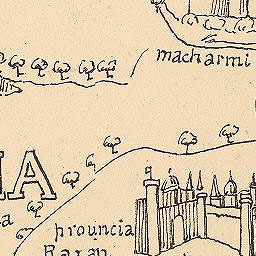 macharmi
IA
a
prouincia
Barain